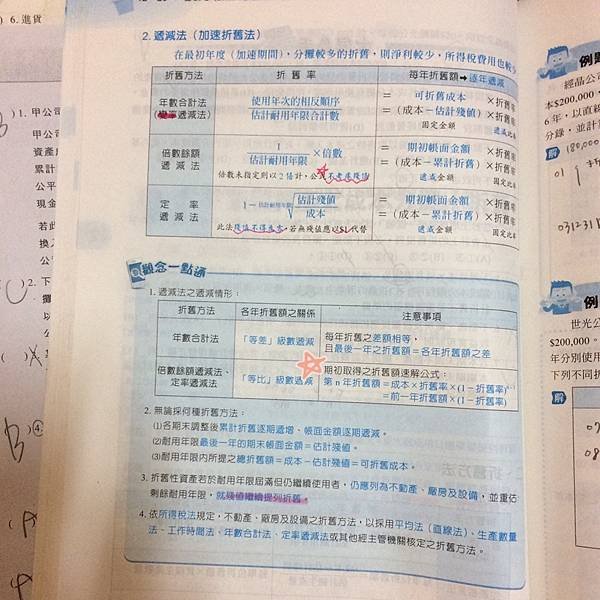 ) 6. 進貨
2. 遞減法（加速折舊法）
在最初年度（加速期間），分攤較多的折舊，則淨利較少，所得稅費用也較少
折舊方法 折 舊 率 每年折舊額➡逐年遞減
年數合計法
(變率遞減法)
使用年次的相反順序
估計耐用年限合計數
= 可折舊成本 ×折舊率
= (成本－估計殘值) ×折舊率
固定金額 遞減比率
倍數餘額
遞 減 法
1
估計耐用年限 ×倍數
倍數未指定則以2倍計，公式不考慮殘值
= 期初帳面金額 ×折舊率
= (成本－累計折舊) ×折舊率
遞減金額 固定比率
定 率
遞 減 法
1－估計耐用年限√估計殘值
成本
此法殘值不得為零，若無殘值應以$1代替
= 期初帳面金額 ×折舊率
= (成本－累計折舊) ×折舊率
遞減金額 固定比率
觀念一點通
1. 遞減法之遞減情形：
折舊方法 各年折舊額之關係 注意事項
年數合計法 「等差」級數遞減
每年折舊之差額相等，
且最後一年之折舊額＝各年折舊額之差
倍數餘額遞減法、
定率遞減法
「等比」級數遞減
期初取得之折舊額速解公式：
第n年折舊額＝成本×折舊率×(1－折舊率)
＝前一年折舊額×(1－折舊率)
2. 無論採何種折舊方法：
(1)各期末調整後累計折舊逐期遞增、帳面金額逐期遞減。
(2)耐用年限最後一年的期末帳面金額＝估計殘值。
(3)耐用年限內所提之總折舊額＝成本－估計殘值＝可折舊成本。
3. 折舊性資產若於耐用年限屆滿但仍繼續使用者，仍應列為不動產、廠房及設備，並重估
剩餘耐用年限，就殘值繼續提列折舊。
4. 依所得稅法規定，不動產、廠房及設備之折舊方法，以採用平均法（直線法）、生產數量
法、工作時間法、年數合計法、定率遞減法或其他經主管機關核定之折舊方法。
B
)1. 甲公司
甲公司
資產
累計
公平
現金
若此
換入
公
)2. 下
攤
以
公
B
④
例題
經品公司
本$200,000，
6 年，以直線
分錄，並計
解
180,000
01
折
0312318
例
世光公
$200,000。
年分別使用
下列不同折
解
07
08